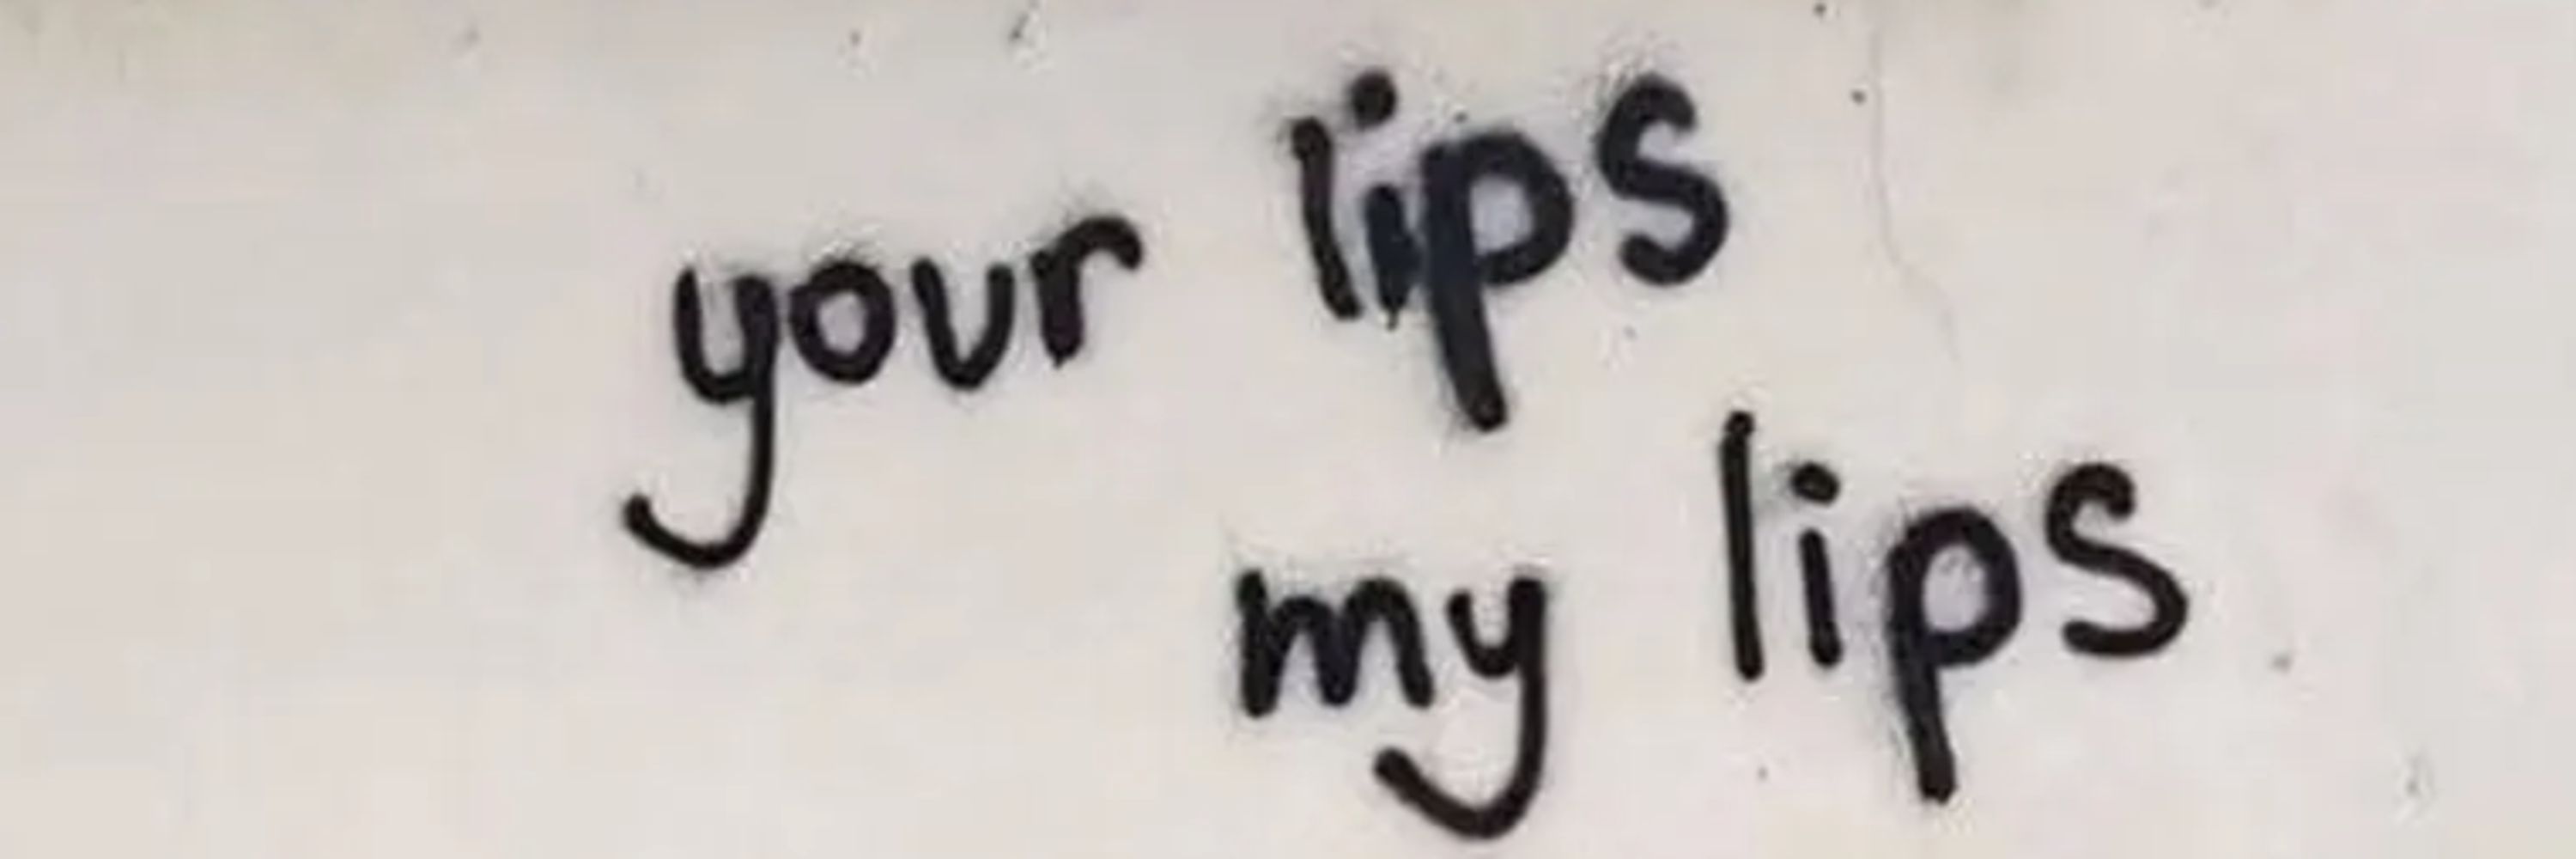 your lips
my lips